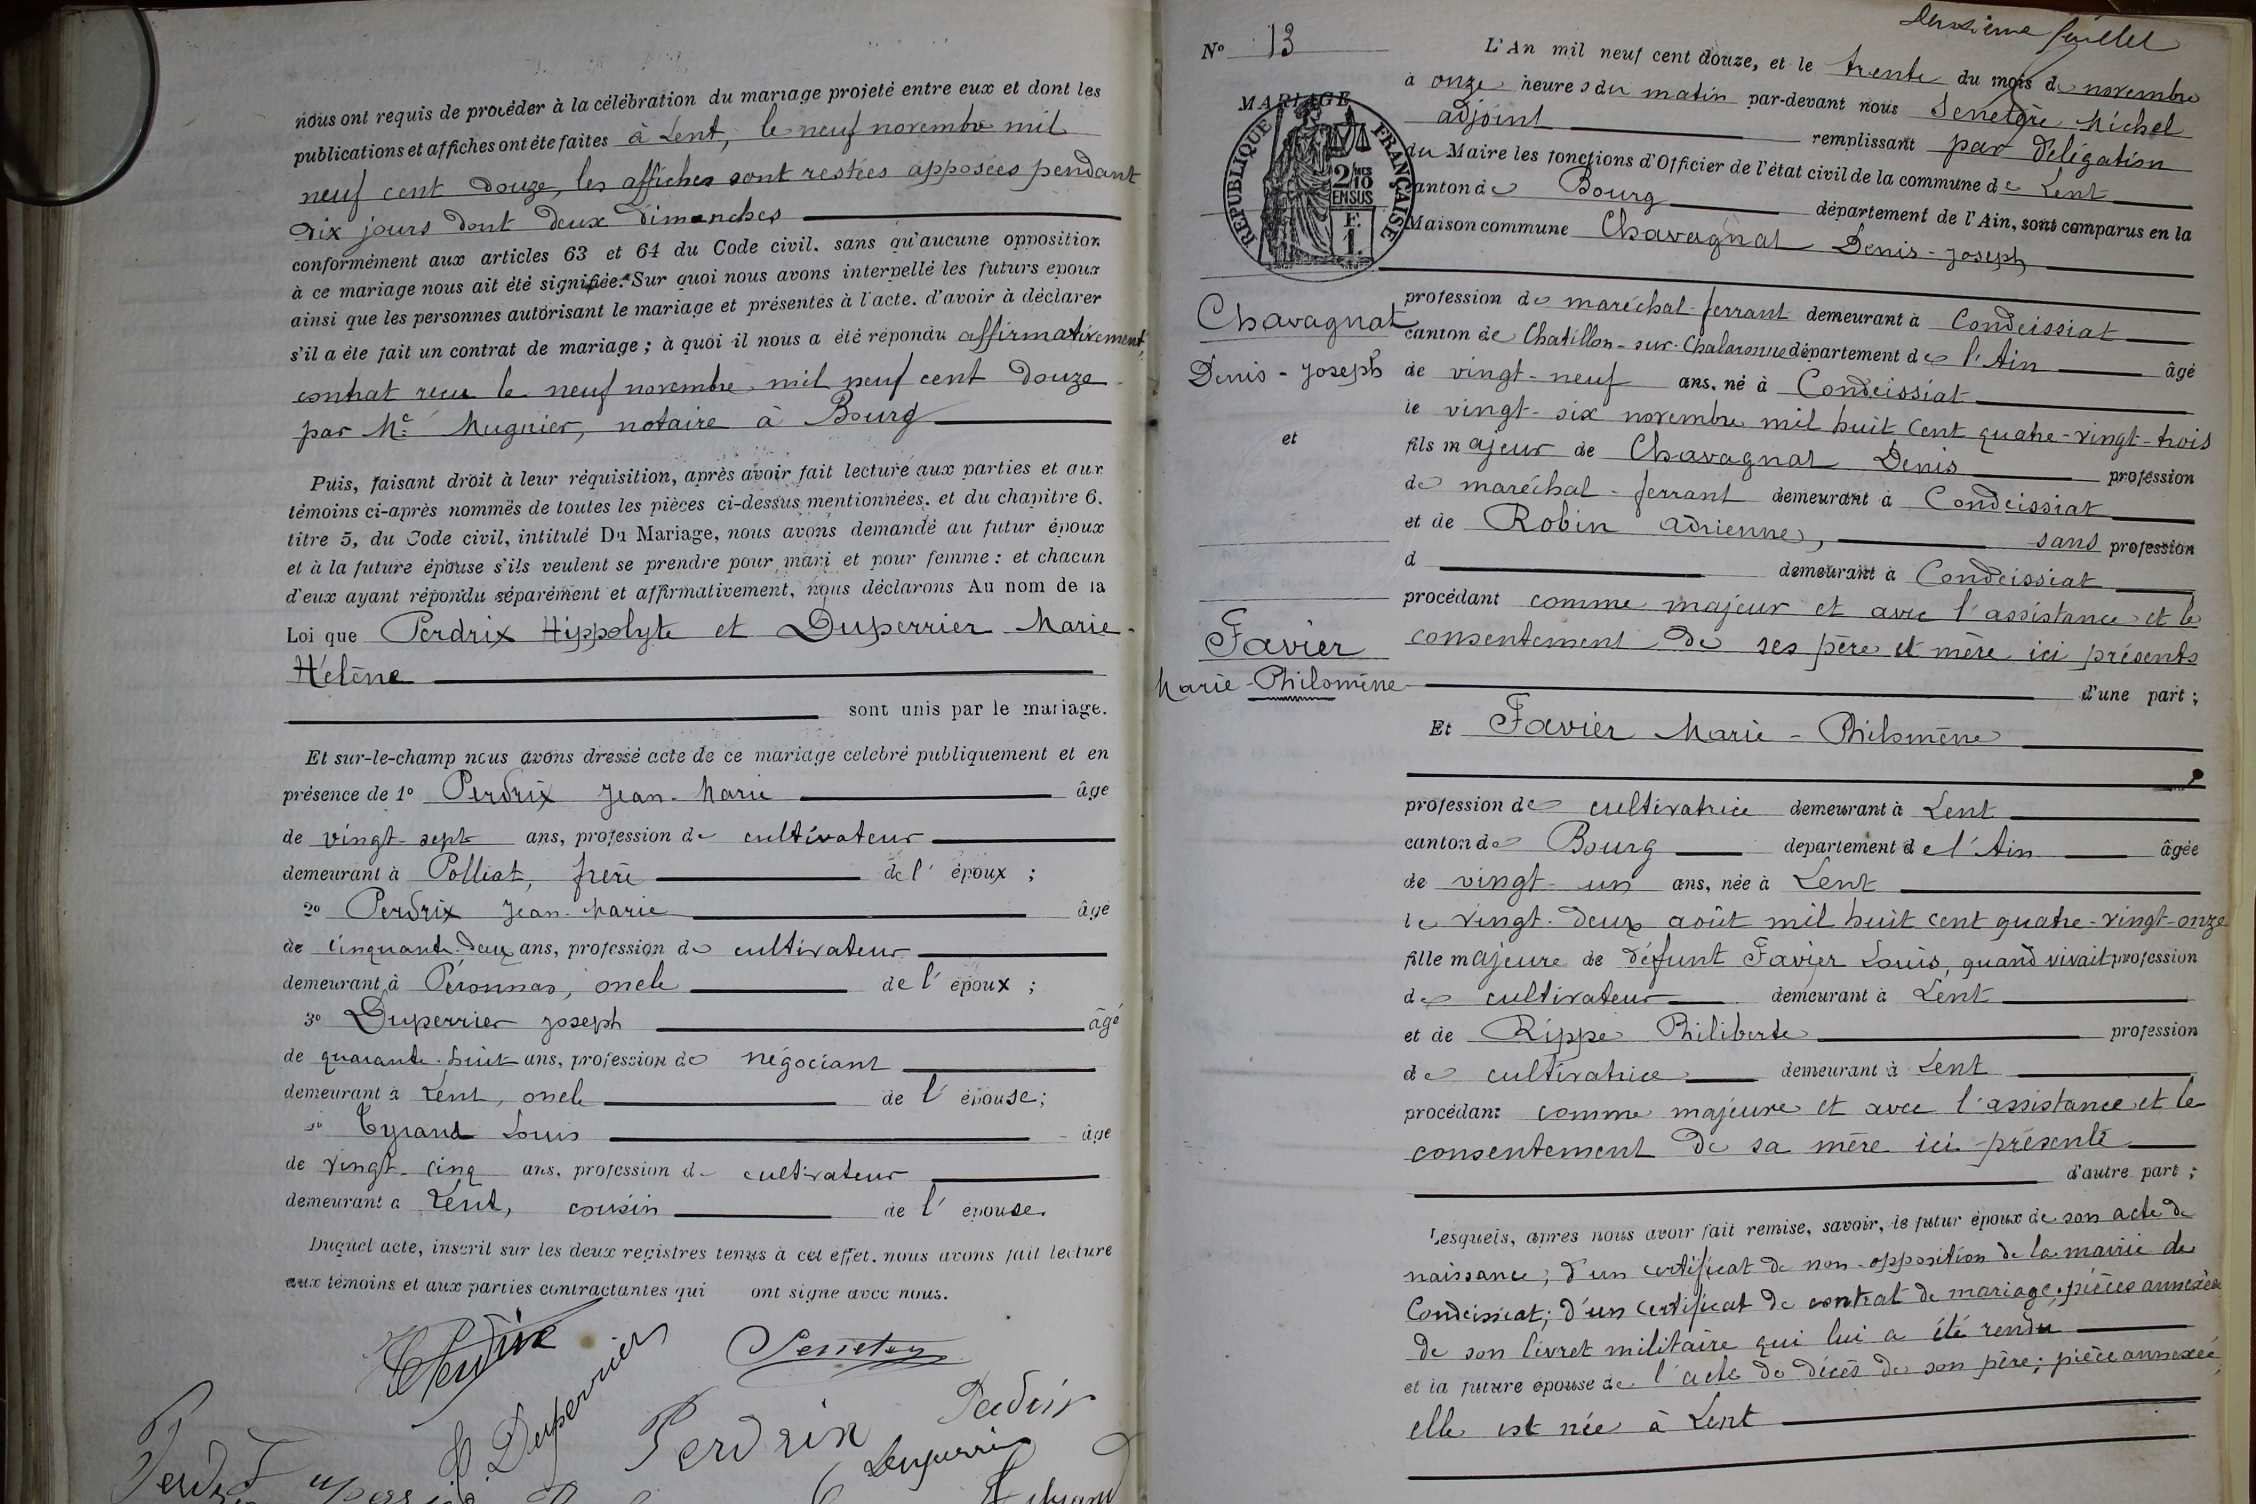 nous ont requis de procéder à la célébration du mariage projeté entre eux et dont les
publications et affiches ont été faites à Lent, le neuf novembre mil
neuf cent douze, les affiches sont restées apposées pendant
dix jours dont deux dimanches
conformément aux articles 63 et 64 du Code civil. sans qu'aucune opposition
à ce mariage nous ait été signifiée. Sur quoi nous avons interpellé les futurs époux
ainsi que les personnes autorisant le mariage et présentes à l'acte. d'avoir à déclarer
s'il a été fait un contrat de mariage ; à quoi il nous a été répondu affirmativement,
contrat reçu le neuf novembre mil neuf cent douze
par Me Mugnier, notaire à Bourg
Puis, faisant droit à leur réquisition, après avoir fait lecture aux parties et aux
témoins ci-après nommés de toutes les pièces ci-dessus mentionnées. et du chapitre 6.
titre 5, du Code civil, intitulé Du Mariage, nous avons demandé au futur époux
et à la future épouse s'ils veulent se prendre pour mari et pour femme : et chacun
d'eux ayant répondu séparément et affirmativement, nous déclarons Au nom de la
Loi que Perdrix Hippolyte et Duperrier Marie-
Hélène
sont unis par le mariage.
Et sur-le-champ nous avons dressé acte de ce mariage célébré publiquement et en
présence de 1o Perdrix Jean-Marie âgé
de vingt-sept ans, profession de cultivateur
demeurant à Polliat, frère de l'époux ;
2o Perdrix Jean-Marie âgé
de cinquante-deux ans, profession de cultivateur
demeurant à Péronnas, oncle de l'époux ;
3o Duperrier Joseph âgé
de quarante-huit ans, profession de négociant
demeurant à Lent, oncle de l'épouse ;
Tyrand Louis âgé
de vingt-cinq ans, profession de cultivateur
demeurant à Lent, cousin de l'épouse.
Duquel acte, inscrit sur les deux registres tenus à cet effet. nous avons fait lecture
aux témoins et aux parties contractantes qui ont signé avec nous.
H Perdrix
Senetère
H. Duperrier
Perdrix
Perdrix
Duperrier
Perdrix
Tyrand
Deuxième feuillet
No 13
L'An mil neuf cent douze, et le trente du mois de novembre
à onze heures du matin par-devant nous Senetère Michel
adjoint remplissant par délégation
du Maire les fonctions d'Officier de l'état civil de la commune de Lent
canton de Bourg département de l'Ain, sont comparus en la
Maison commune Chavagnat Denis-Joseph
MARIAGE
REPUBLIQUE FRANÇAISE
2/10MES
EN SUS
F.
1.
Chavagnat
Denis-Joseph
et
Favier
Marie-Philomène
profession de maréchal-ferrant demeurant à Condeissiat
canton de Chatillon-sur-Chalaronne département de l'Ain âgé
de vingt-neuf ans, né à Condeissiat
le vingt-six novembre mil huit cent quatre-vingt-trois
fils majeur de Chavagnat Denis profession
de maréchal-ferrant demeurant à Condeissiat
et de Robin Adrienne, sans profession
d demeurant à Condeissiat
procédant comme majeur et avec l'assistance et le
consentement de ses père et mère ici présents
d'une part ;
Et Favier Marie-Philomène
profession de cultivatrice demeurant à Lent
canton de Bourg département de l'Ain âgée
de vingt-un ans, née à Lent
le vingt-deux août mil huit cent quatre-vingt-onze
fille majeure de défunt Favier Louis, quand vivait profession
de cultivateur demeurant à Lent
et de Rippe Philiberte profession
de cultivatrice demeurant à Lent
procédant comme majeure et avec l'assistance et le
consentement de sa mère ici présente
d'autre part ;
Lesquels, après nous avoir fait remise, savoir, le futur époux de son acte de
naissance ; d'un certificat de non-opposition de la mairie de
Condeissiat ; d'un certificat de contrat de mariage, pièces annexées
de son livret militaire qui lui a été rendu
et la future épouse de l'acte de décès de son père ; pièce annexée,
elle est née à Lent